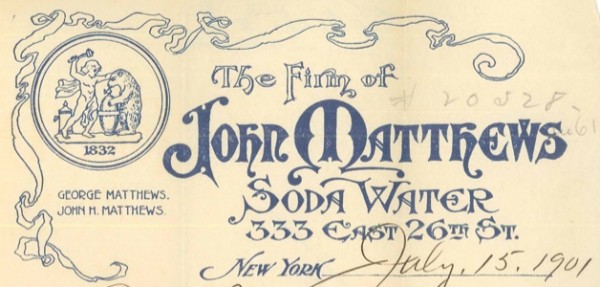 The Firm of
# 20528
John Matthews
Soda Water
333 East 26th St.
New York July, 15, 1901
1832
GEORGE MATTHEWS.
JOHN H. MATTHEWS.